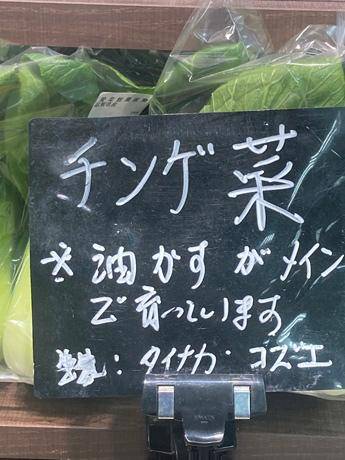 チンゲ菜
※油かすがメイン
で育っています
タイナカ・コズエ